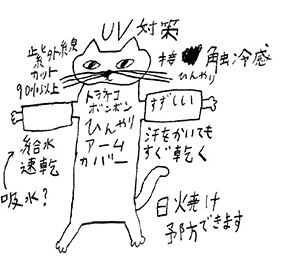 UV対策
紫外線
カット
90%以上
接触冷感
ひんやり
トラネコ
ボンボン
ひんやり
アーム
カバー
すずしい
給水
速乾
吸水?
汗をかいても
すぐ乾く
日火焼け
予防できます